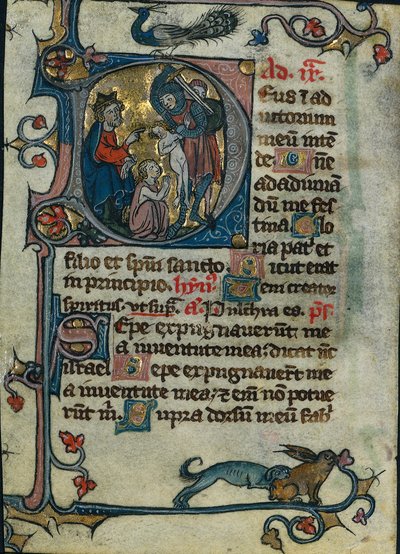 Ad. ix.
Deus ī ad
iutorium
meū inte
de. Dñe
ad adiuuā
dū me fes
tina Glo
ria pat̄ et
filio et spūi sancto Sicut erat
in principio. hȳn⁹ Veni creator
spiritus. ut supͣ. a. Pulchra es. ps̄
Sepe expugnauerunt me
a iuuentute mea: dicat nc̄
israel Sepe expugnauerūt me
a iuuentute mea; ⁊ em̄ nō potue
runt m̄. Supra dorsū meū fab̄